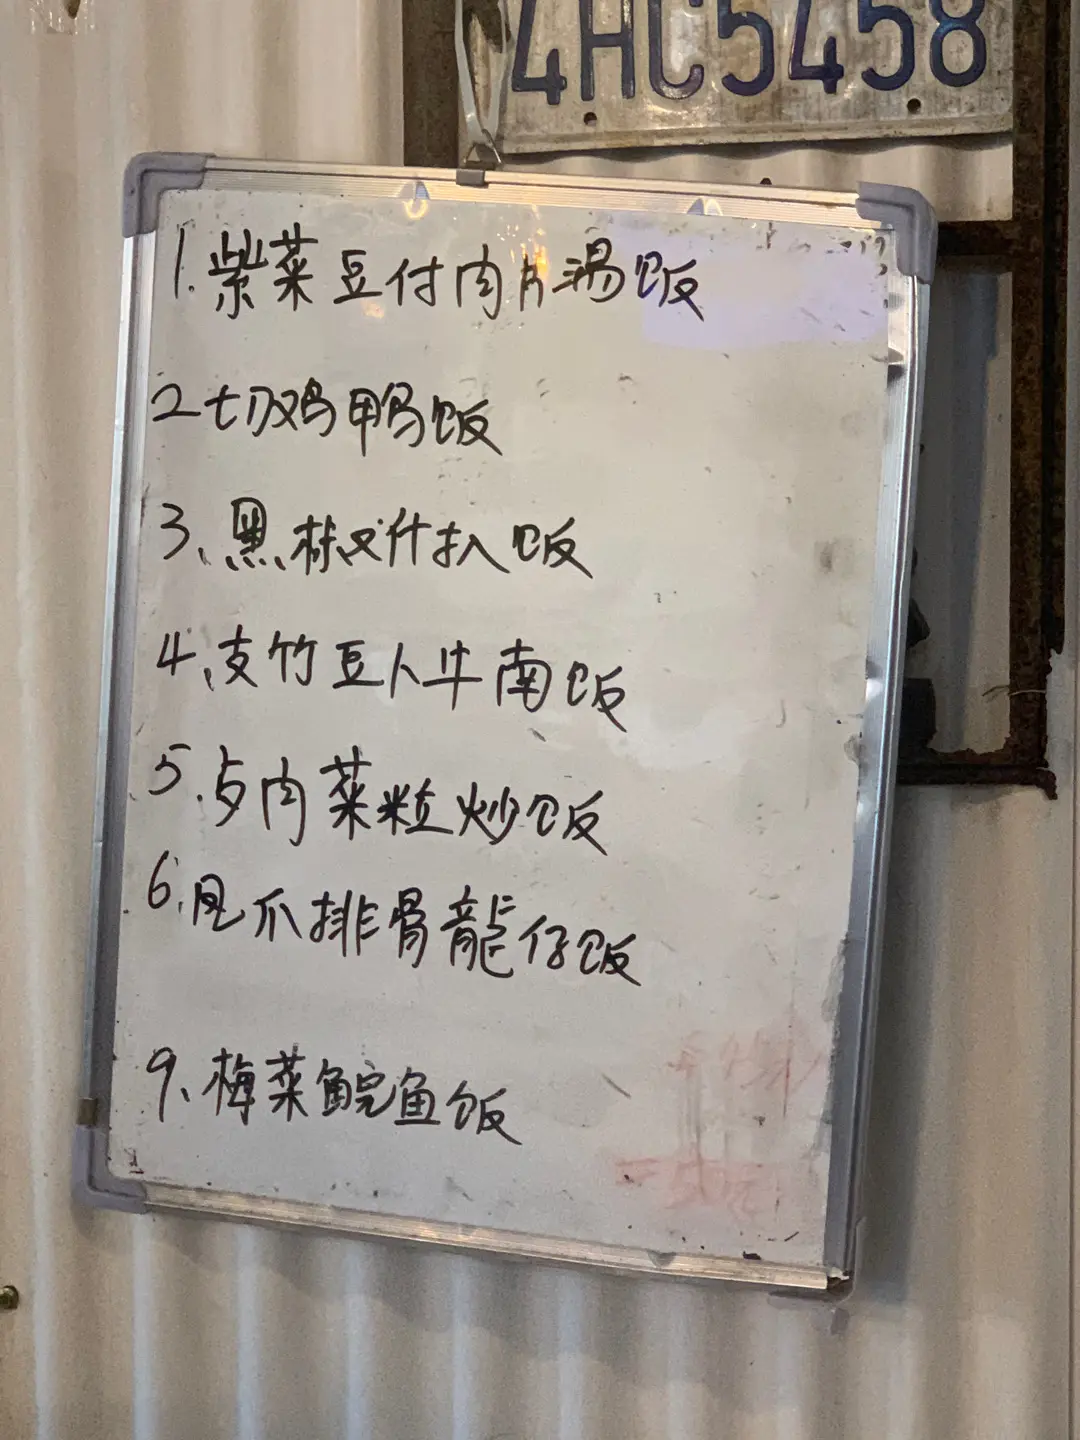 4HC5458
1.紫菜豆付肉片汤饭
2切鸡鸭饭
3、黑椒汁扒饭
4、支竹豆卜牛南饭
5.卤肉菜粒炒饭
6.凤爪排骨龍仔饭
9、梅菜鲩鱼饭